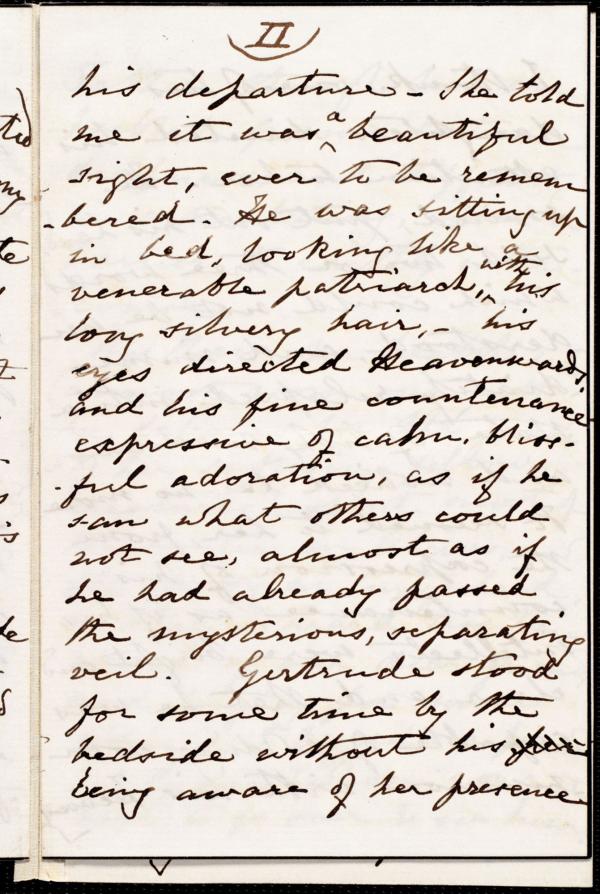 II
his departure - She told
me it was a beautiful
sight, ever to be remem
-bered. He was sitting up
in bed, looking like a
venerable patriarch, with his
long silvery hair, - his
eyes directed Heavenwards,
and his fine countenance
expressive of calm, bliss-
-ful adoration, as if he
saw what others could
not see, almost as if
he had already passed
the mysterious, separating
veil. Gertrude stood
for some time by the
bedside without his
being aware of her presence